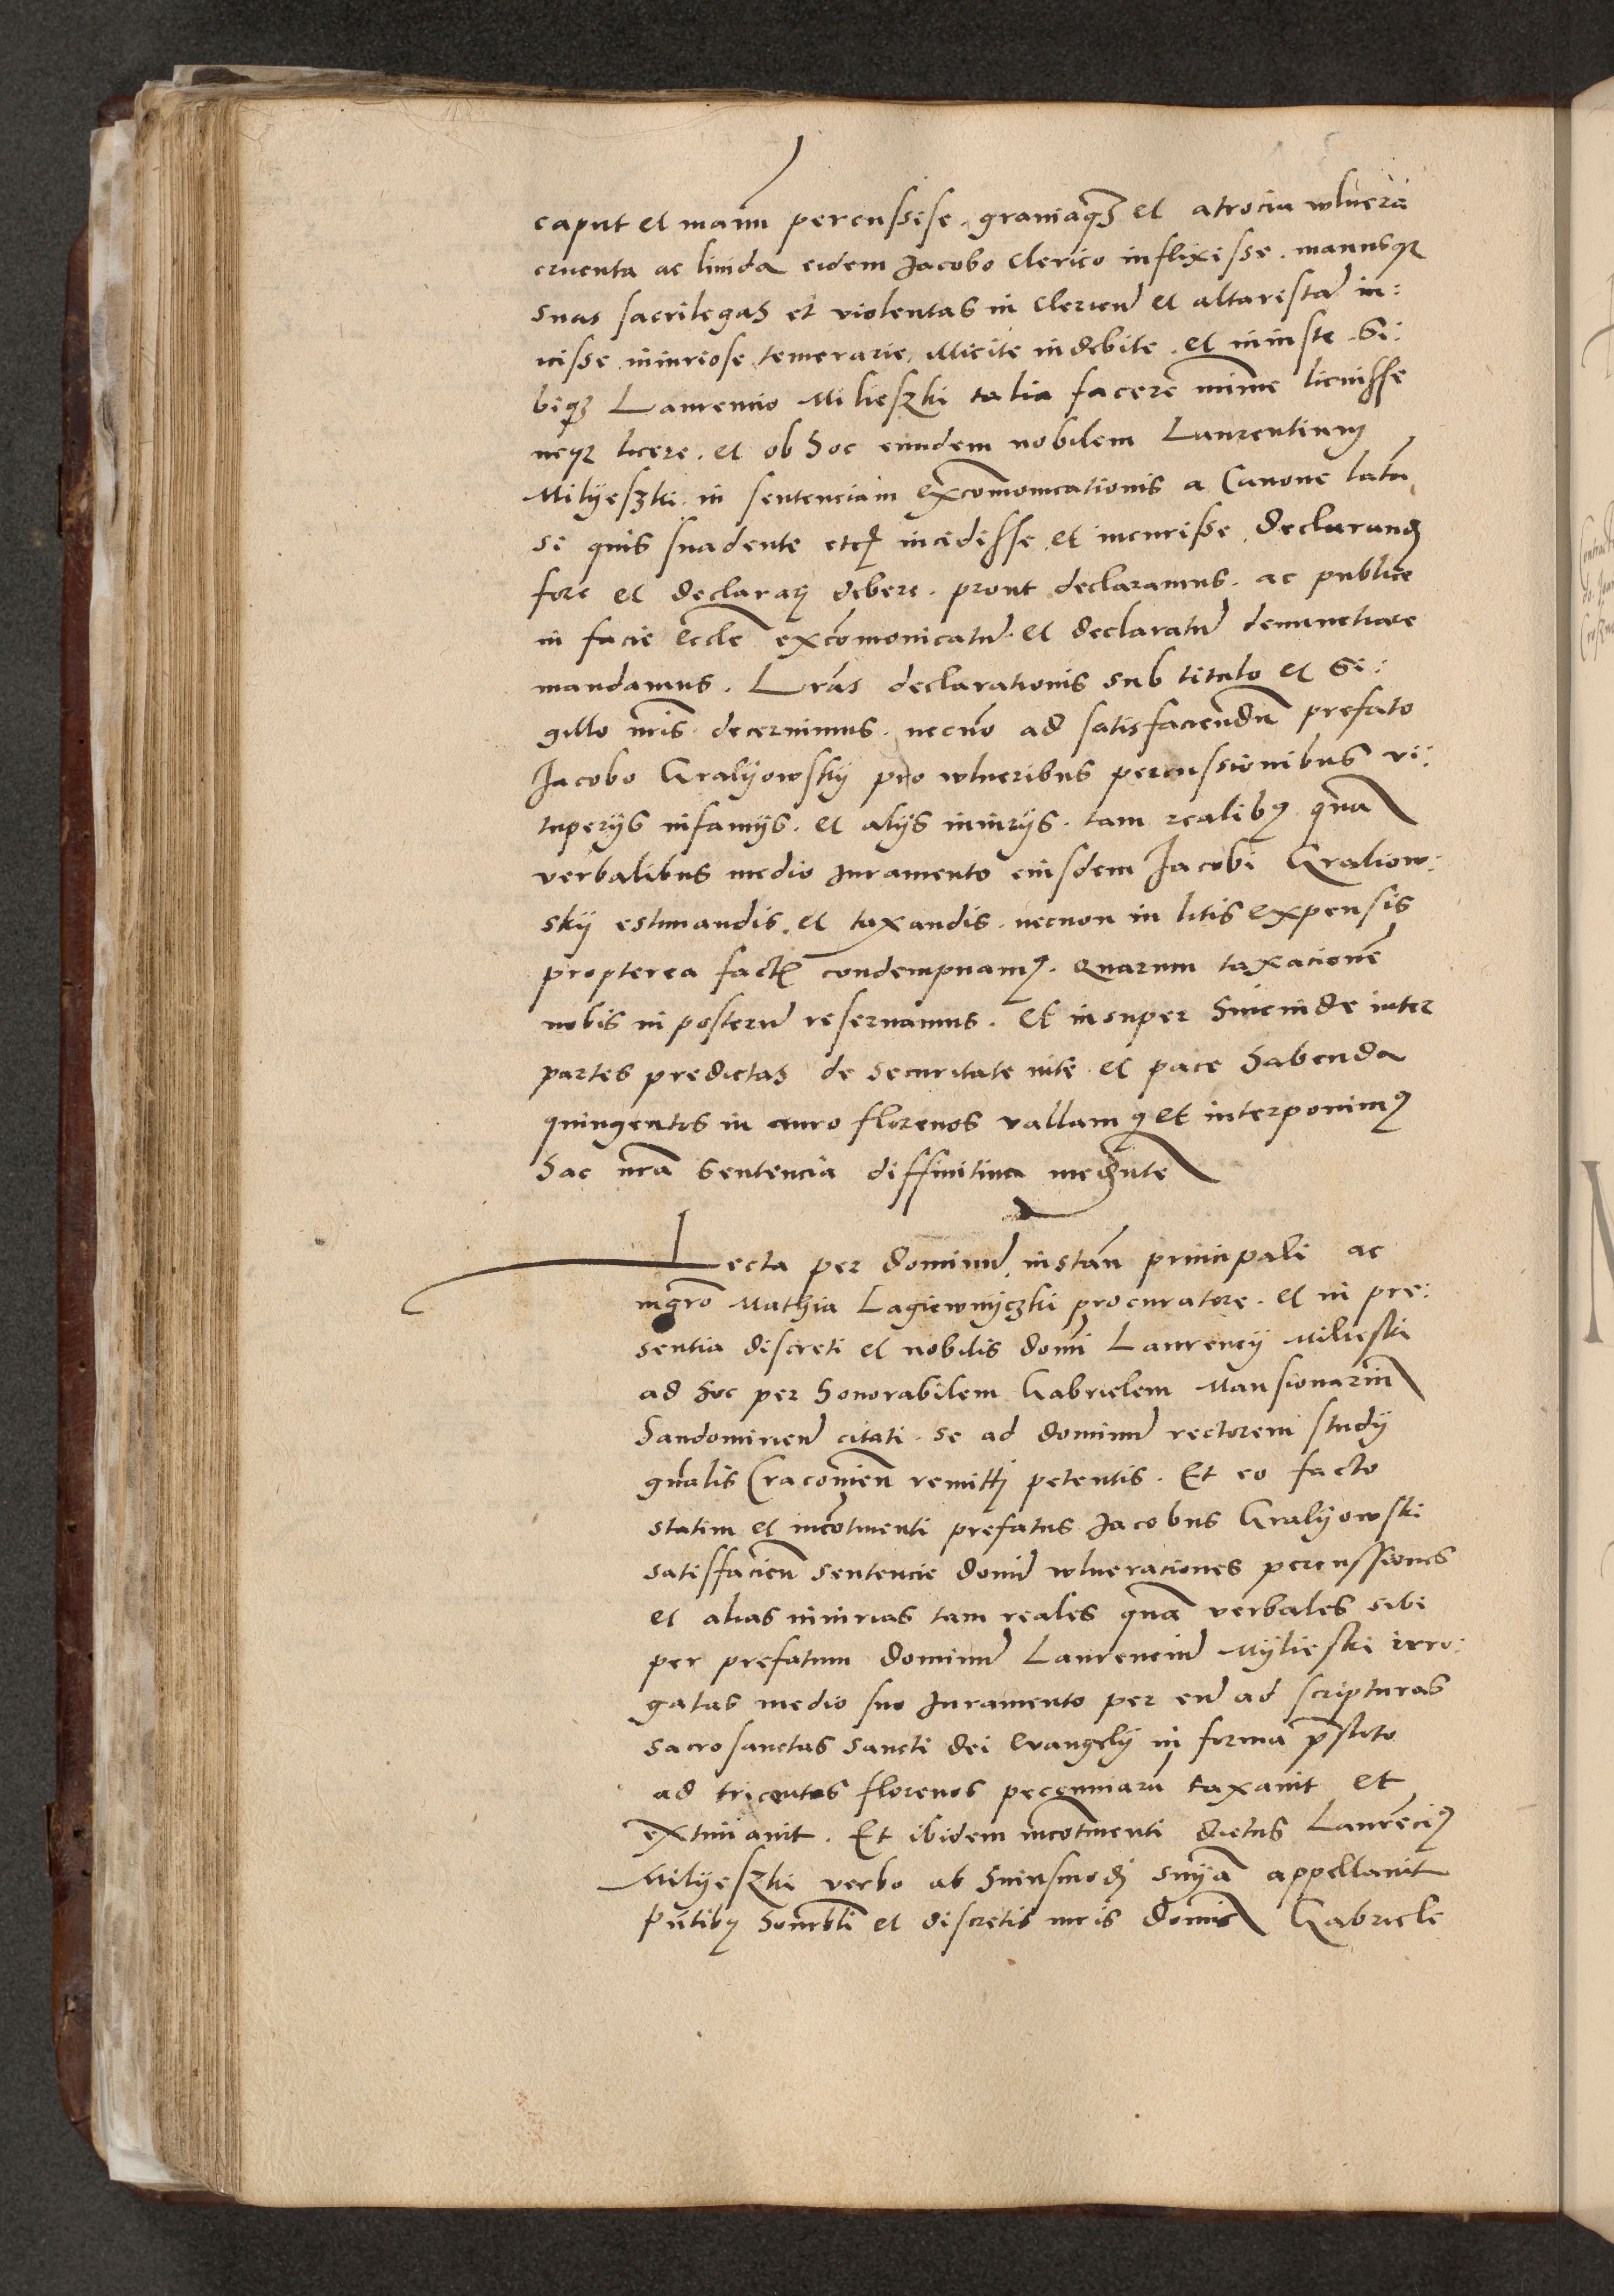 caput et manu percussisse, graviaqꝫ et atrocia wlnera
cruenta ac livida eidem Jacobo Clerico inflixisse. manusqꝫ
suas sacrilegas et violentas in clericũ et altaristã in:
iecisse iniuriose temerarie, illicite indebite. et iniuste. Si:
biqꝫ Laurencio Milieszki talia facere minime licuisse
neqꝫ licere. et ob hoc eundem nobilem Laurentium
Milyeszki in sentenciam excõmonicationis a Canone latã
si quis suadente etcꝭ incidisse et incurisse, declarandꝫ
fore et declararj debere. prout declaramus. ac publice
in facie Eccl̃e excõmonicatũ et declaratũ denunctiare
mandamus. Lrãs declarationis sub titulo et Si:
gillo nr̃is decernimus. necnõ ad satisfaciendũ prefato
Jacobo Gralyowsky pro wlneribus percussionibus vi:
tuperijs infamijs. et alijs iniurijs. tam realibꝫ quã
verbalibus medio Juramento eiusdem Jacobi Graliow:
skij estimandis. et taxandis. necnon in litis expensis
propterea factꝭ condempnamꝰ. quarum taxacionẽ
nobis in posterũ reservamus. Et insuper hincinde inter
partes predictas de securitate vite et pace habenda
quingentos in auro florenos vallamꝰ et interponimꝰ
hac nr̃a Sentencia diffinitiva medꝫnte
Lecta per dominũ, instañ principali ac
mgr̃o Mathia Lagiewnyczki procuratore. et in pre:
sentia discreti et nobilis domĩ Laurencij Milieski
ad hoc per honorabilem Gabrielem Mansionariũ
Sandomirieñ citati. se ad dominũ rectorem studij
gñalis Cracovieñ remittj petentis. Et eo facto
statim et incõtinenti prefatus Jacobus Gralyowski
satisfacieñ sentencie domĩ wlneraciones percussiones
et alias iniurias tam reales quã verbales sibi
per prefatum dominũ Laurenciũ Mylieski irro:
gatas medio suo Juramento per eũ ad scripturas
sacrosanctas sancti dei evangelij in forma p̃stito
ad tricentos florenos pecuniarũ taxavit et
extimavit. Et ibidem incõtinenti dictus Laurẽciꝰ
Milyeszki verbo ab huiusmodj sñyã appellavit
Pñtibꝫ honorabĩli et discretis viris domĩs Gabriele